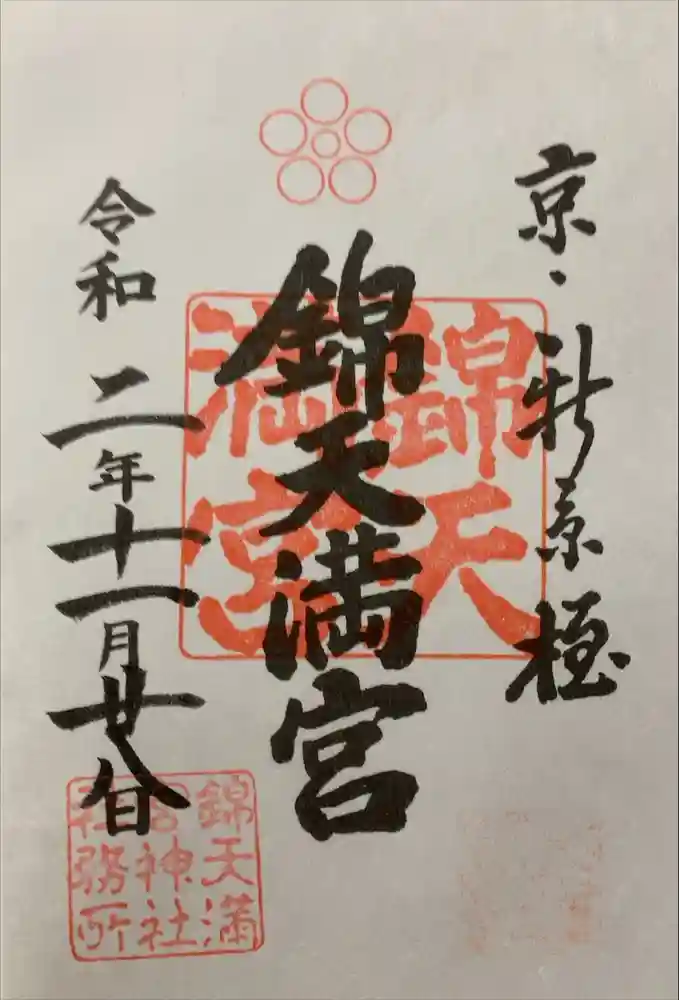 京・新京極
錦天満宮
錦天
満宮
令和二年十一月廿八日
錦天満
宮神社
社務所